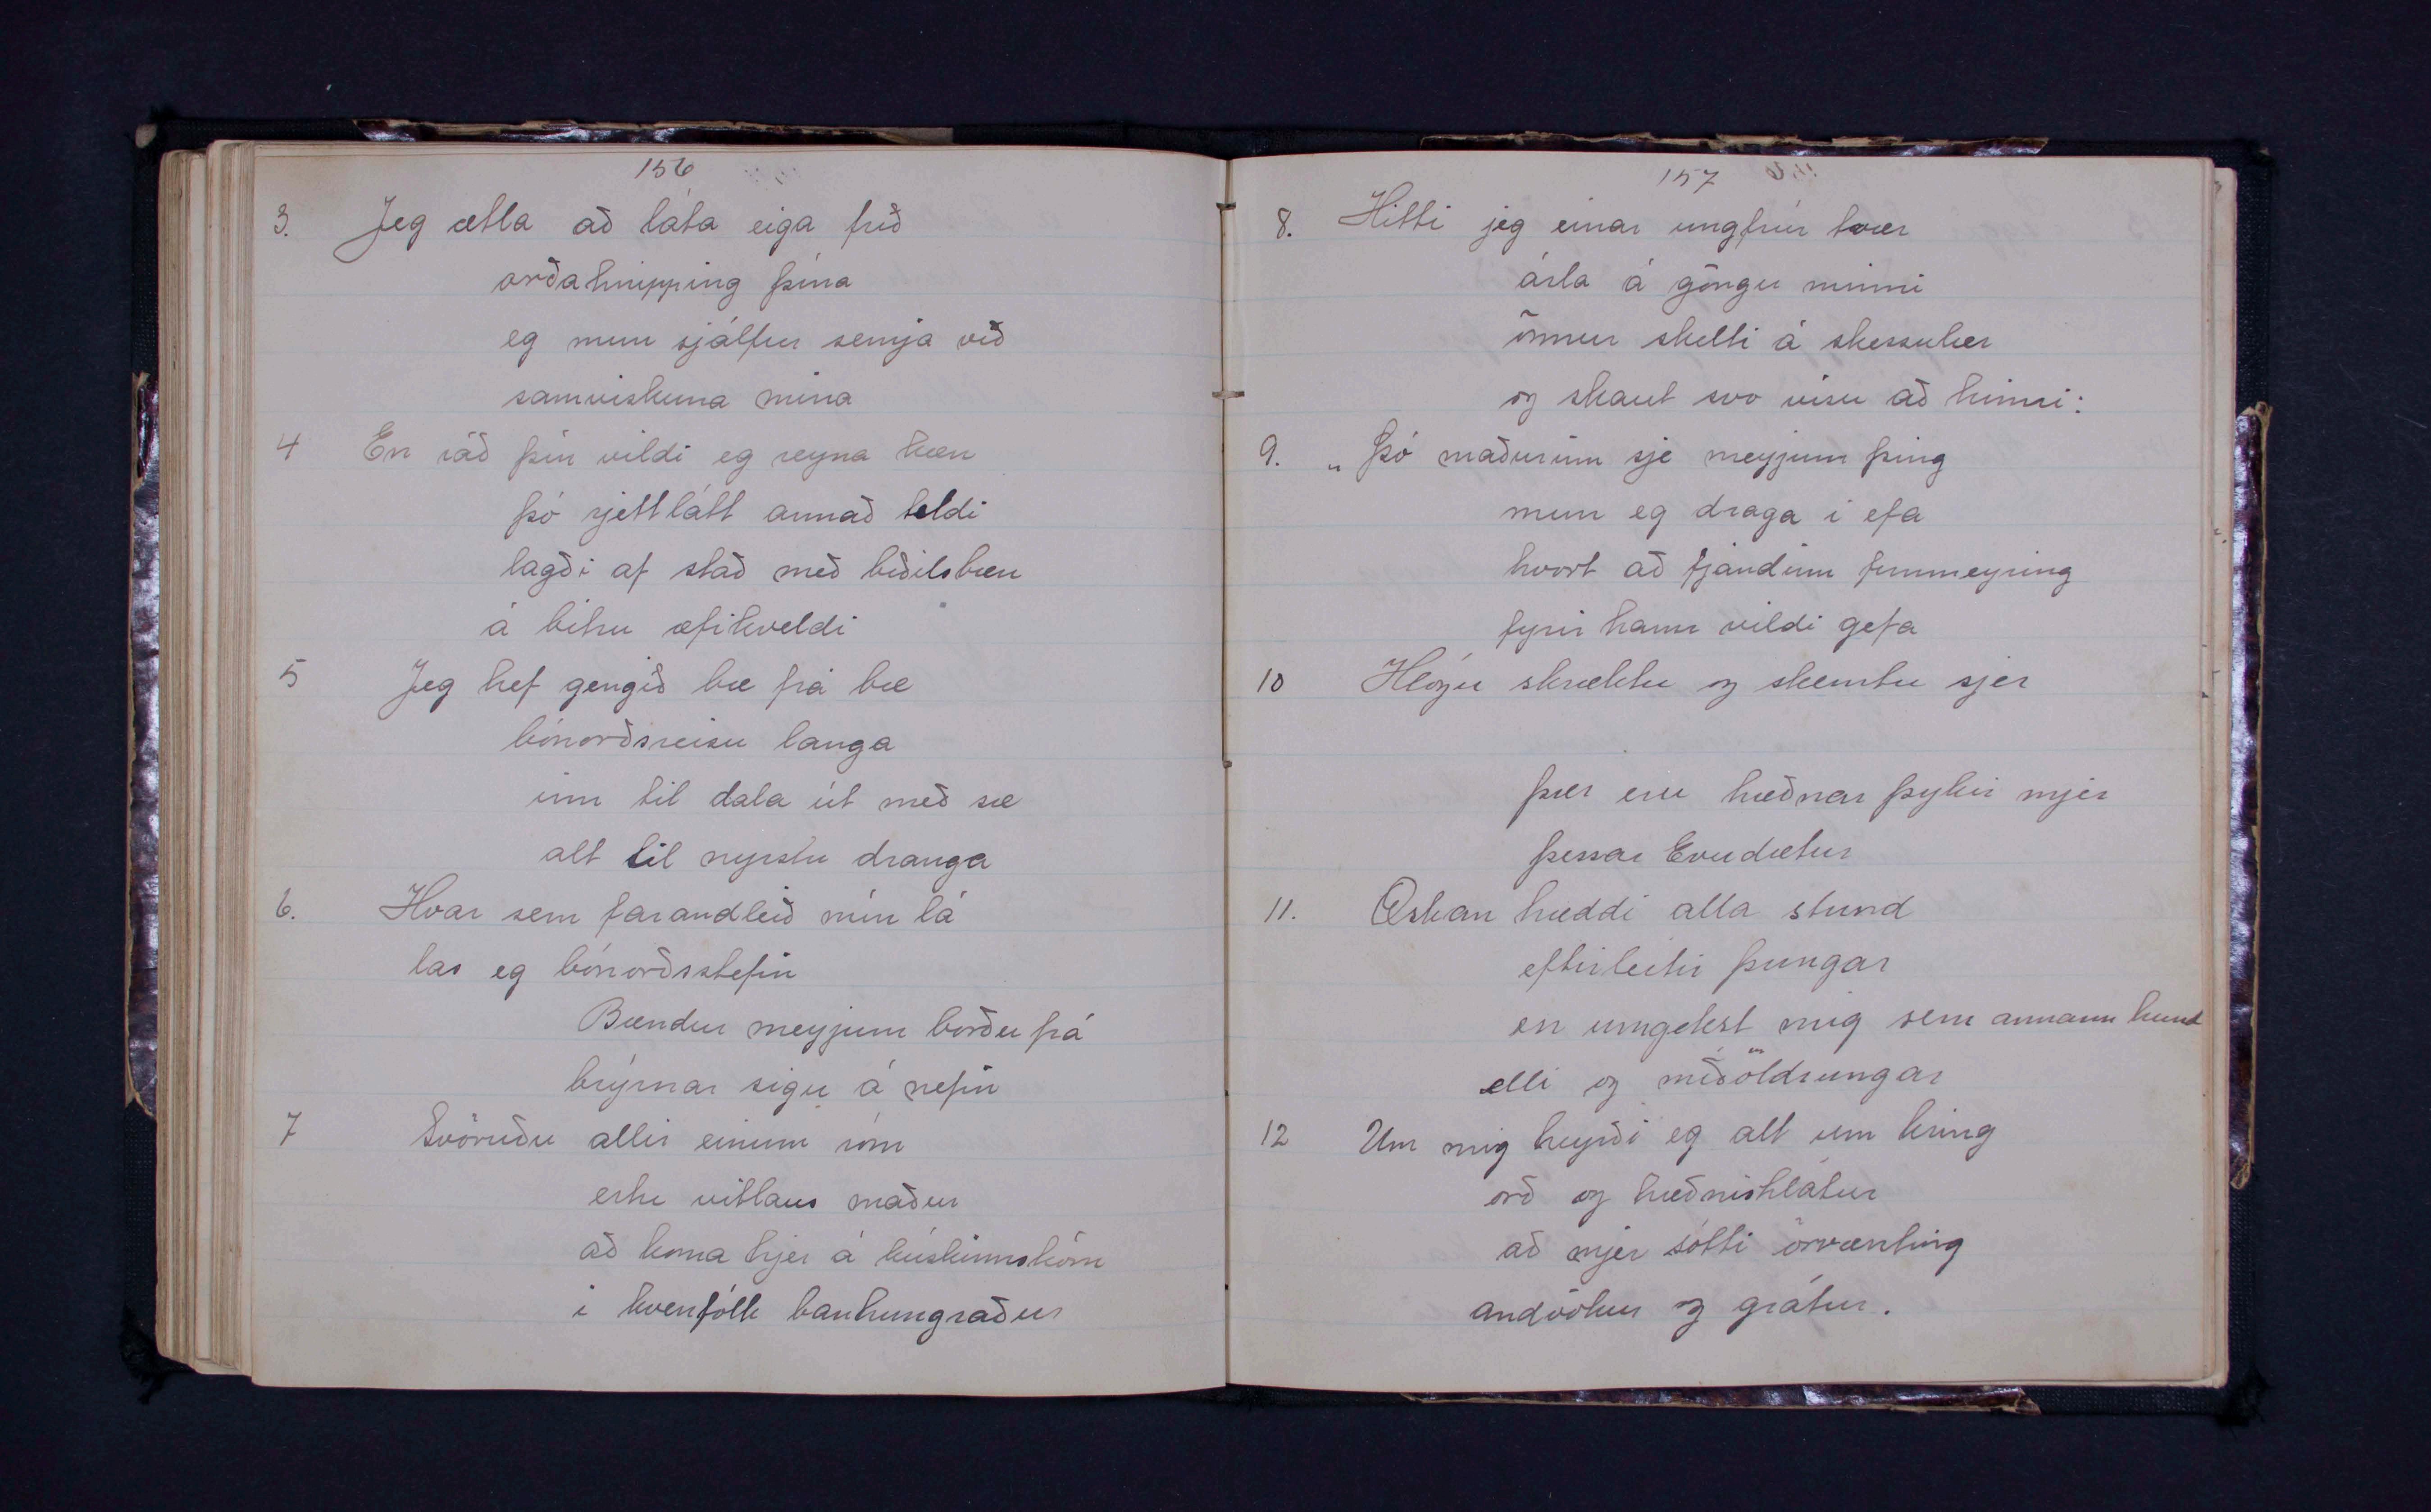 156
3. Jeg ætla að láta eiga frið
orðahnipping þína
eg mun sjálfur semja við
samviskuna mína
4 En ráð þín vildi eg reyna kæn
þó rjettlátt annað teldi
lagði af stað með biðilsbæn
á björtu æfikveldi
5 Jeg hef gengið bæ frá bæ
bónorðsreisu langa
inn til dala út með sæ
alt til nyrstu dranga
6. Hvar sem farandleið mín lá
las eg bónorðsstefin
Bændur meyjum borðu frá
brýrnar sigu á nefin
7 Svöruðu allir einum róm
erkivitlaus maður
að koma hjer á kúskinnskóm
í kvenfólk banhungraður
157
8. Hitti jeg einar ungfrúr tvær
árla á göngu minni
önnur skelti á skessulær
og skaut svo vísu að hinni:
9. „Þó maðurinn sje meyjum þing
mun eg draga í efa
hvort að fjandinn fimmeyring
fyrir hann vildi gefa
10 Hlógu skræktu og skemtu sjer
þær eru hæðnar þykir mjer
þessar Evudætur
11. Æskan hæddi alla stund
eftirleitir þungar
en umgekst mig sem annann hund
elli og miðöldrungar
12 Um mig heyrði eg alt um kring
orð og hæðnishlátur
að mjer sótti örvænting
andvökur og grátur.